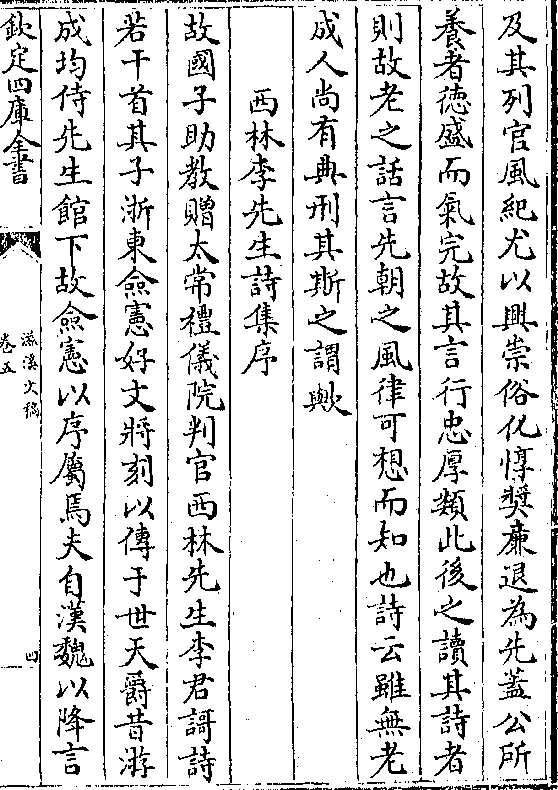 及其列官風紀尤以興崇俗化惇奬廉退為先蓋公所
養者徳盛而氣完故其言行忠厚類此後之讀其詩者
則故老之話言先朝之風律可想而知也詩云雖無老
成人尚有典刑其斯之謂歟
西林李先生詩集序
故國子助教贈太常禮儀院判官西林先生李君謌詩
若干首其子浙東僉憲好文將刻以傳于世天爵昔游
成均侍先生館下故僉憲以序屬焉夫自漢魏以降言
欽定四庫全書
滋溪文稿
卷五
四